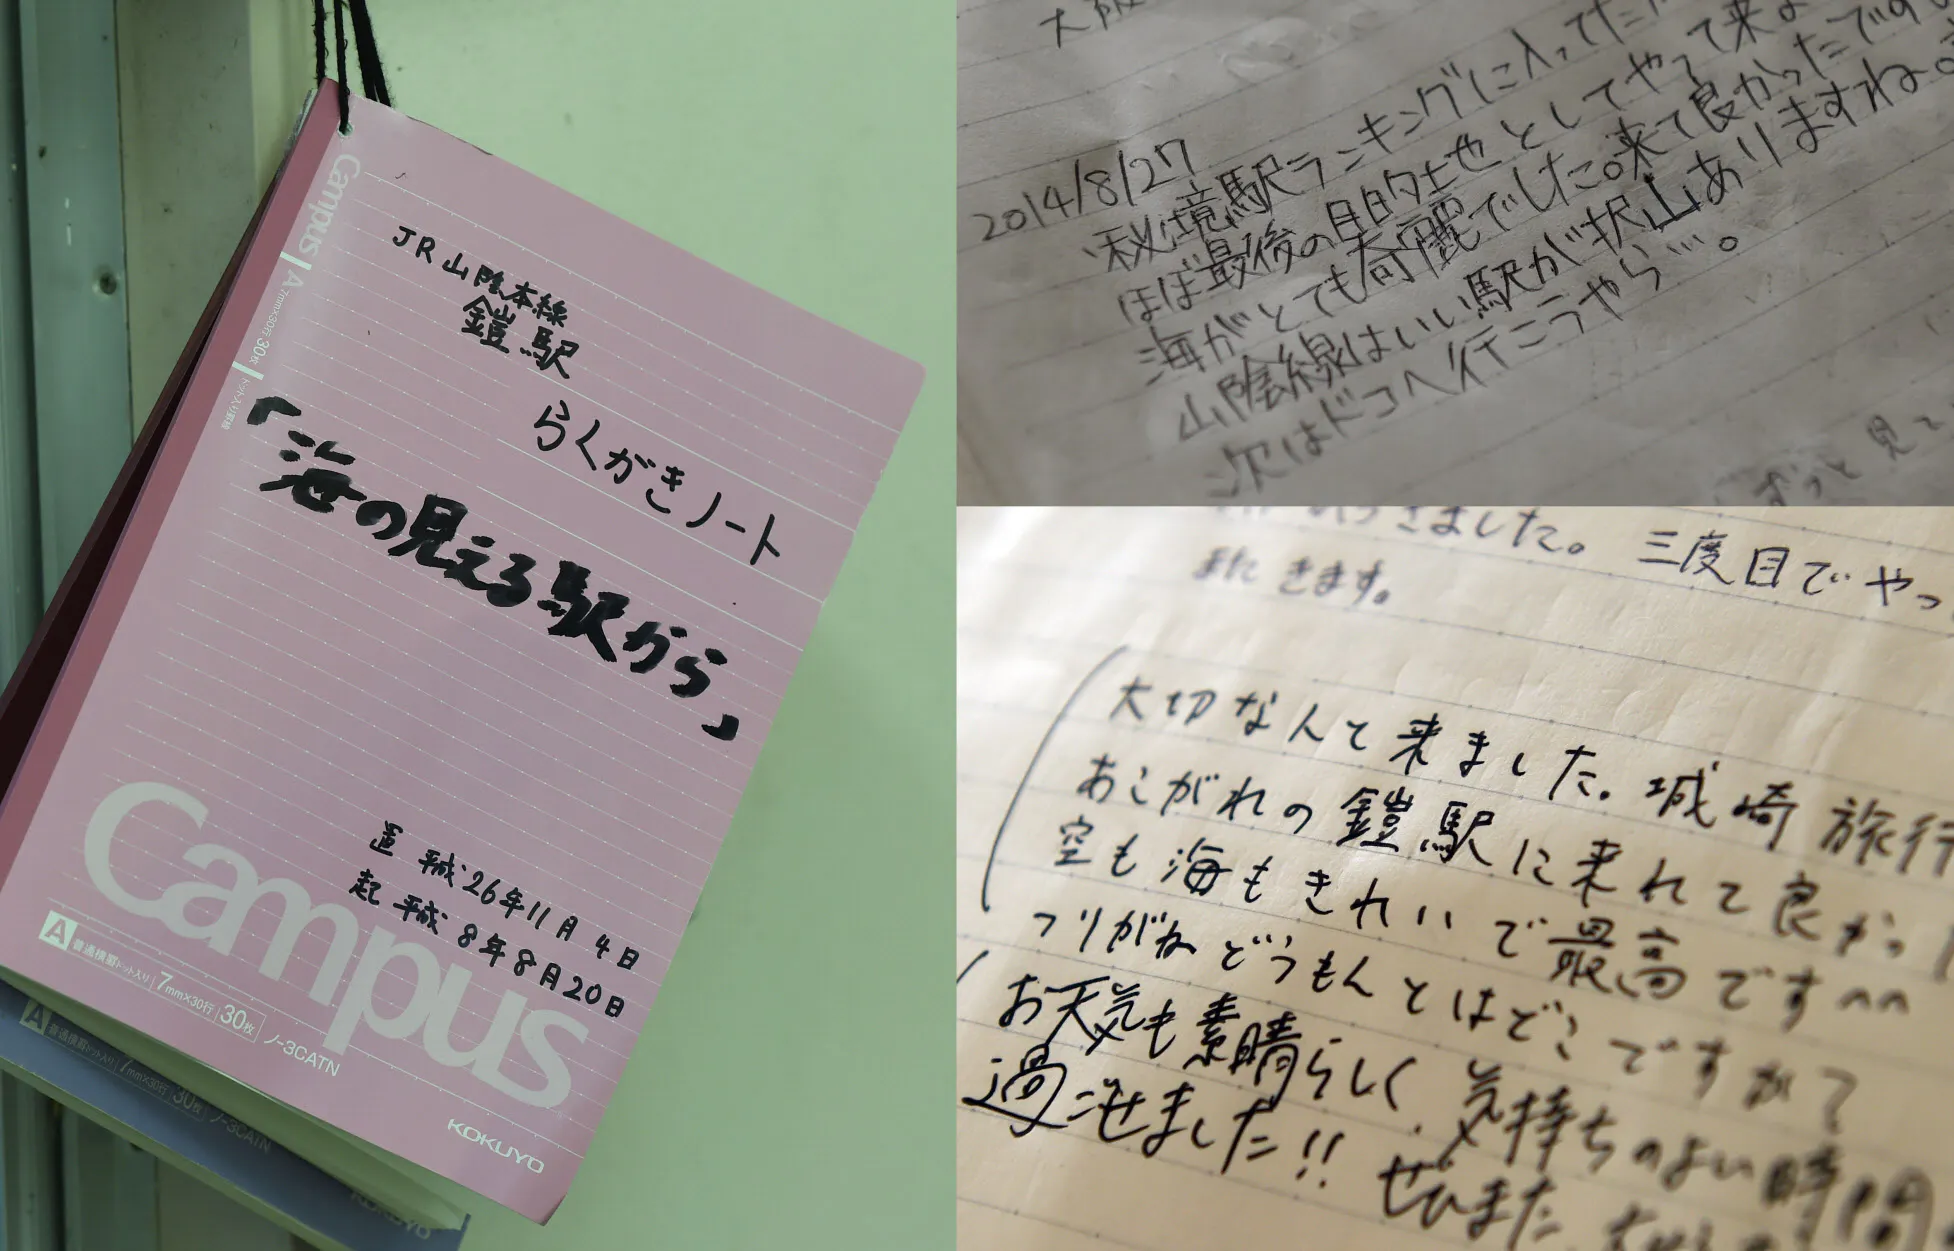 Campus A 7mm×30行 30枚 ドット入り罫線
JR山陰本線
鎧駅
らくがきノート
「海の見える駅から」
置 平成26年11月4日
起 平成8年8月20日
Campus
A 普通横罫ドット入り 7mm×30行 30枚 ノ-3CATN
KOKUYO
A 普通横罫ドット入り 7mm×30行 30枚 ノ-3CATN
KOKUYO
大阪
2014/8/27
秘境駅ランキングに入ってた
ほぼ最後の目的地としてやって来
海がとても綺麗でした。来て良かったです
山陰線はいい駅が沢山ありますね。
次はドコへ行こうやら…。
ずっと見て
きました。三度目でやっ
またきます。
大切な人と来ました。城崎旅行
あこがれの鎧駅に来れて良かっ
空も海もきれいで最高です^^
つりがねどうもんとはどこですかて
お天気も素晴らしく、気持ちのよい時間
過ごせました!! ぜひまた